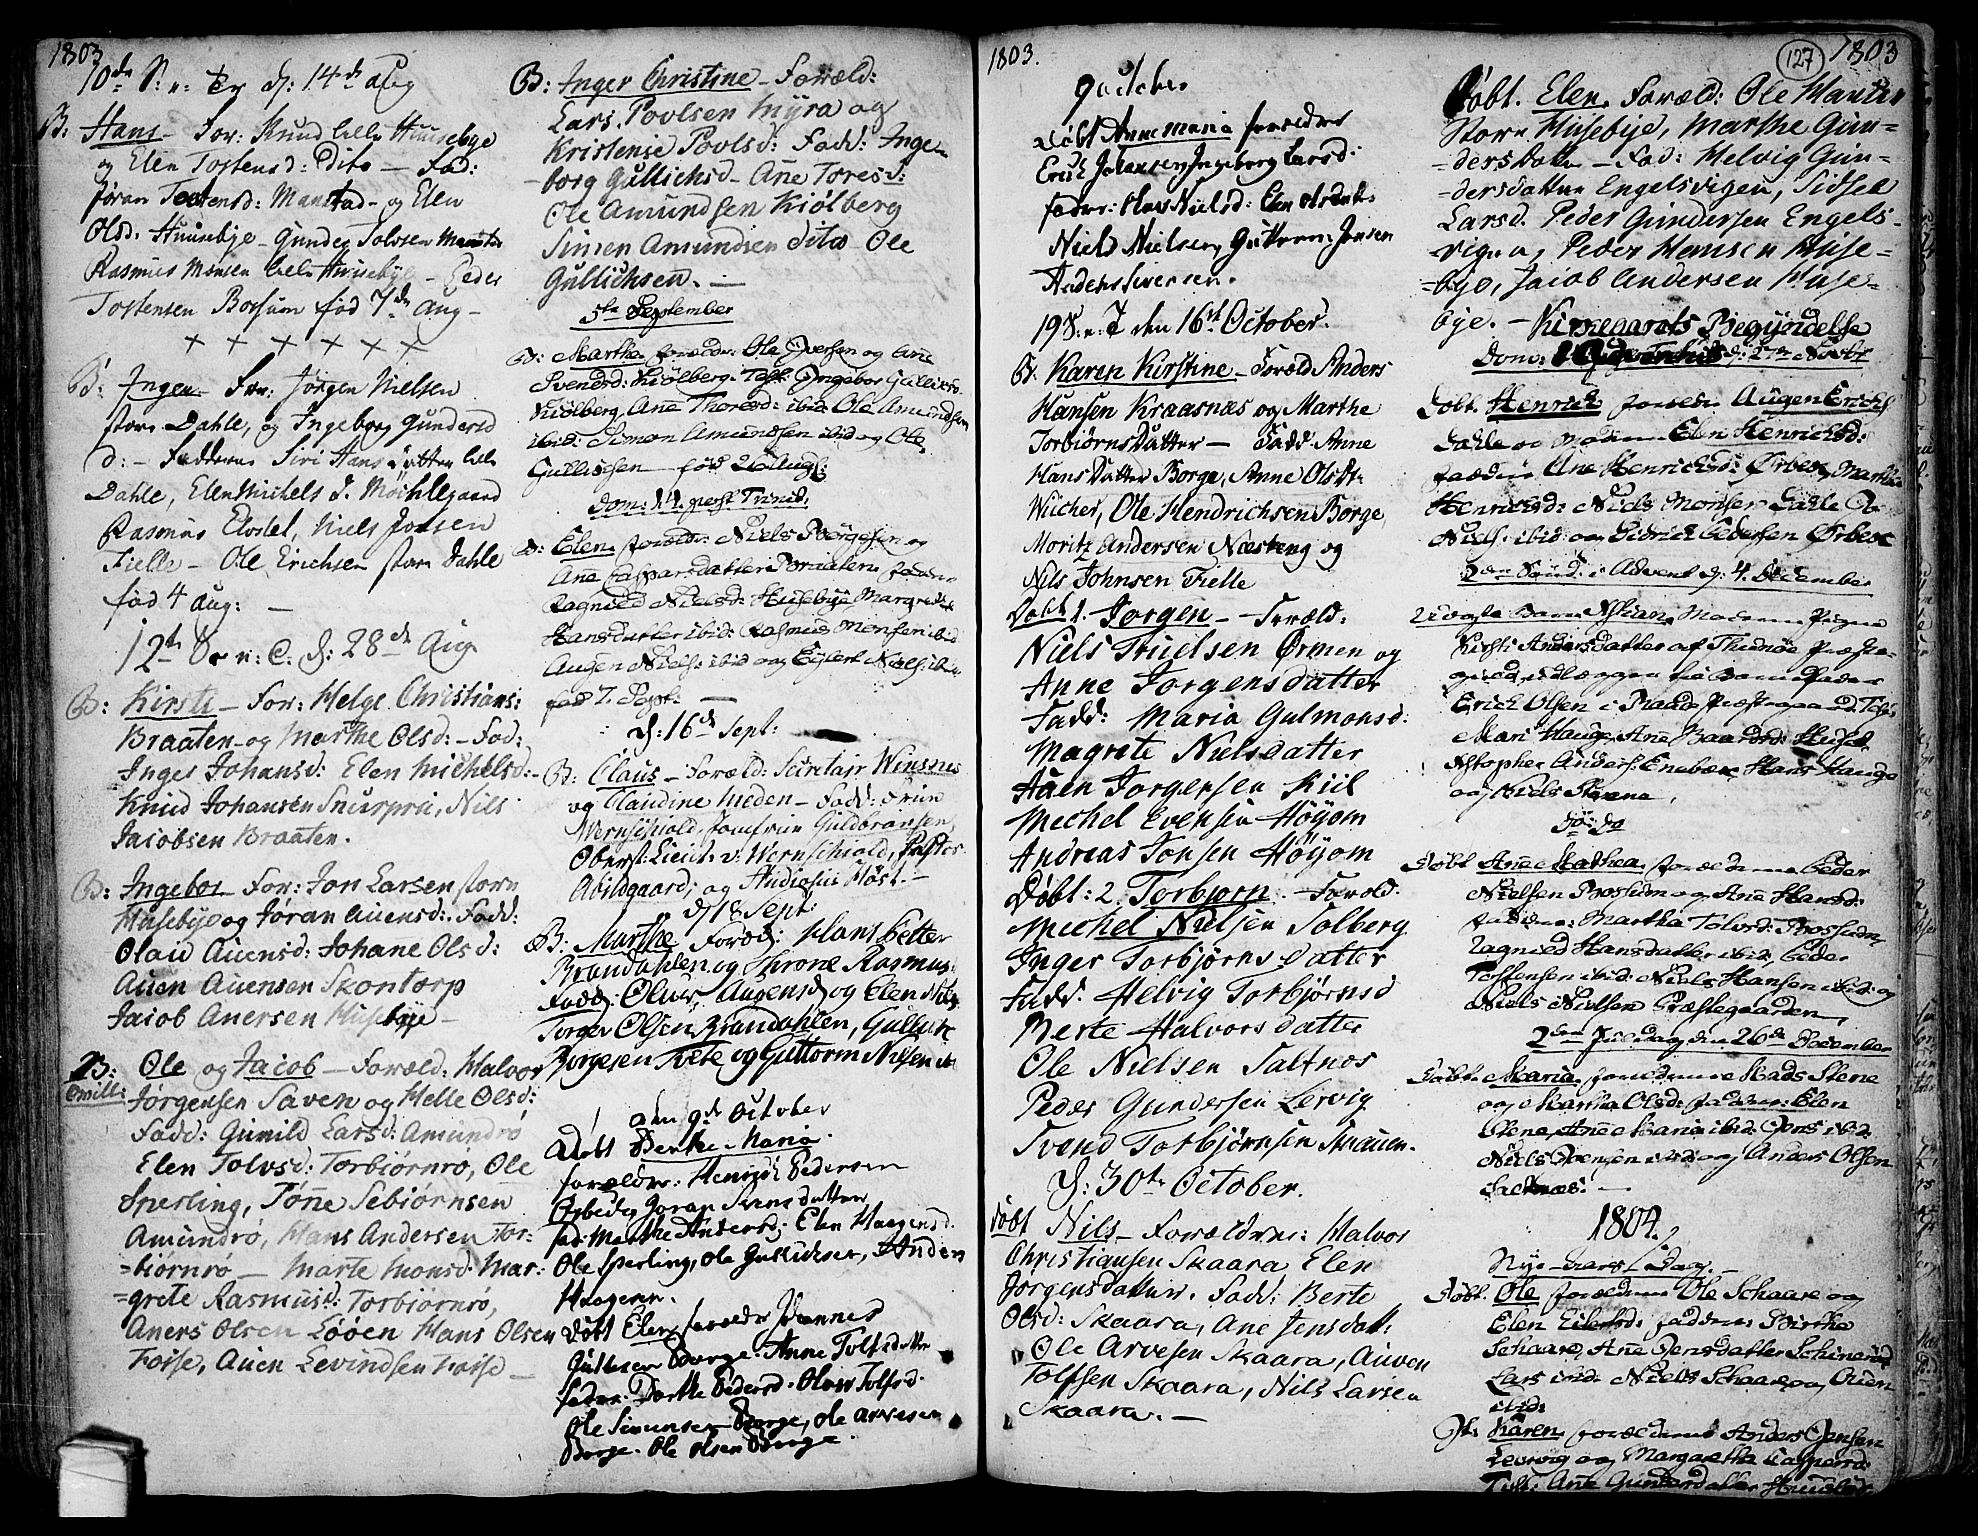 1803
10de S: n: Tr d: 14de Aug
B: Hans - For: Knud lille Huusebye
og Elen Tostensd: Dito - Fad:
Jøran Tostensd: Manstad - og Elen
Olsd: Huusebye - Gunder Tolvsen
Rasmus Monsen lille Huusebye - Peder
Tostensen Borsum fød 7de Aug -
× × × × × ×
B: Inger For: Jørgen Nielsen
store Dahle, og Ingeborg Gundersd
d: - Fadderne Siri Hans Datter lille
Dahle, Elen Michels d. Møchlegaard
Rasmus Elvstel, Niels Jonsen
Fielle - Ole Erichsen store Dahle
fød 4 Aug: -
12te S n: T. d: 28de Aug
B: Kirsti - For: Helge Christians:
Braaten - og Marthe Olsd: - Fad:
Inger Johansd: Elen Michelsd: -
Knud Johansen Snurpru, Niels
Jacobsen Braaten.
B: Ingebor - For: Jon Larsen store
Husebye og Jøran Auensd: Fadd:
Olaid Auensd: Johane Olsd:
Auen Auensen Skontorp
Jacob Anersen Husebye -
2 B: Ole og Jacob - Foræld: Halvor
Tvill: Jørgensen Saven og Helle Olsd:
Fadd: Gunild Larsd: Amundrø
Elen Tolvsd: Torbiørnrø, Ole
Sperling, Tønne Sebiørnsen
Amundrø, Hans Andersen Tor-
=biørnrø - Marte Monsd: Mar:
=grete Rasmusd: Torbiørnrø,
Aners Olsen Løøen Hans Olsen
Toise, Auen Levindsen Toise -
B: Inger Christine - Foræld:
Lars Povlsen Myra og
Kristense Povlsd: Fadd: Inge-
-borg Gullichsd - Ane Toresd:
Ole Amundsen Kiølberg
Simen Amundsen dito - Ole
Gullichsen. -
5te September
B: Marthe forældr: Ole Iversen og Ane
Svendsd: Kiølberg. Test: Ingebor Gulliksd
Kiølberg, Ane Thoresd: ibid Ole Amundsen
ibid: Simon Amundsen ibid og Ole
Gullichsen - fød 26 Aug:
Dom: 14 post Trinid:
B: Elen, forældr: Niels Børgesen og
Ane Caspersdatter Braaten faddr:
Ragnild Nielsd: Husebye Margrethe
Hansdatter ibid: Rasmus Monsen ibid
Augen Niels: ibid og Eylert Niels: ibid
fød 7. Sept: -
d: 16de Sept:
B: Claus - Foræld: Secretair Winsnes
og Claudine Meden - Fadd: Fruu
Wernschiold, Jomfrue Guldbransen,
Oberst: Lieut: v: Wernschiold, Pastor
Abildgaard, og Studiosus Høst. -
d 18 Sept:
B: Marthe Foræd: Hans Petter
Brandahlen og Throne Rasmus:
Fadd: Oluer Augensd og Elen Niels
Torger Olsen Brandahlen, Gullich
Børgesen Tvete og Guttorm Nielsen
den 9de October
Døbt Berthe Maria.
forældre: Henrich Pedersen
Ørbech, Joran Svensdatter
fad: Marthe Andersd: Elen Haagensd.
Ole Sperling, Ole Gullichsen, Anders
Haagensen.
Døbt Elen, forældre Johannes
Guttersen Borge. Anne Tolfsdatter
faddr: Dorthe Pedersd. Oliv Tolfsd:
Ole Simensen Borge, Ole Arvesen
Borge. Ole Olsen Borge
1803.
9 october
Døbt Anne Maria forældre
Erich Johansen Ingeborg Larsd:
faddr: Oliv Nielsd: Elen Olsdatter
Niels Nielsen, Guttorm Jensen
Anders Iversen.
19 S. n. T den 16de October.
B. Karen Kirstine - Foræld Anders
Hansen Kraasnæs og Marthe
Torbiørns Datter - Fadd: Anne
Hans Datter Borge, Anne Ols Dtr
Wiicher, Ole Hendrichsen Borge,
Moritz Andersen Næsteng og
Nils Johnsen Fielle
Døbt 1. Jorgen - Foræld:
Niels Truelsen Ørmen og
Anne Jorgensdatter
Fadd: Maria Gulmonsd:
Magrete Nielsdatter
Auen Jorgersen Kiil
Mechel Evensen Høyom
Andreas Jonsen Høyom
Døbt: 2. Torbjorn - Foræld:
Mechel Nielsen Solberg
Inger Torbjørnsdatter
Fadd. Helvig Torbjørnsd
Berte Halvorsdatter
Ole Nielsen Saltnos
Peder Gundersen Lervig
Svend Torbjørnsen Skauen.
d: 30te October.
Døbt Nils - Forældrene: Halvor
Christiansen Skaara Elen
Jorgensdatter. Fadd: Berte
Olsd: Skaara, Ane Jensdatt:
Ole Arvesen Skaara, Auven
Tolfsen Skaara, Nils Larsen
Skaara. -
127 1803
Døbt. Elen. Foræld: Ole Hansen
Store Husebye, Marthe Gun=
-dersdatter - Fad: Helvig Gun=
-dersdatter Engelsvigen, Sidsel
Larsd. Peder Gundersen Engels-
vigen, Peder Hansen Huse=
=bye, Jacob Andersen Huse=
bye. - Kirkegarets Begyndelse
Dom: 1 Adventus, d: 27 Novbr
Døbt. Henrich forældr: Augen Erichs
Dahle og Moderen Elen Henrichsd:
faddr: Ane Henrichsd: Ørbech, Marthe
Henrichsd: Niels Monsen Dahle
Niels: ibid og Didrich Pedersen Ørbech
2den Sønd: i Advent d: 4. December
Uægte Barn Kistian, Moderen Pigen
Kirsti Andersdatter af Thunøe Præste-
gield, udlæggen til Barnefader
Erich Olsen i Raade Præstegaard. Test:
Mari Hauge, Ane Baardsd: Husebye
Kstopher Anders: Enebær, Hans Hauge
og Niels Steene.
do: do
Døbt Ane Mathea, forældrene Peder
Nielsen Brosum og Ane Hansd:
faddr: Martha Tolvsd: Brosum,
Ragnild Hansdatter ibid, Peder
Torstensen ibid, Niels Hansen ibid og
Niels Nielsen Præstegaarden,
2den Juledag den 26de December
Døbt. Maria, forældrene Mads Stene
og Martha Olsd: fadderne: Elen
Stene, Ane Maria ibid. Jens ibid.
Niels Svensen ibid og Anders Olsen
Saltnæs. -
1804.
Nye-Aars Dag. -
Døbt. Ole forældrene Ole Schaare og
Elen Eilertsd: faddrene: Birthe
Schaare, Ane Jensdatter Schinnerød
Lars ibid. Niels Schaare og Auen
ibid.
It: Karen, forældrene Anders Jensen
Lervig og Margaretha Caspersd:
Test: Ane Gundersdatter Huseby